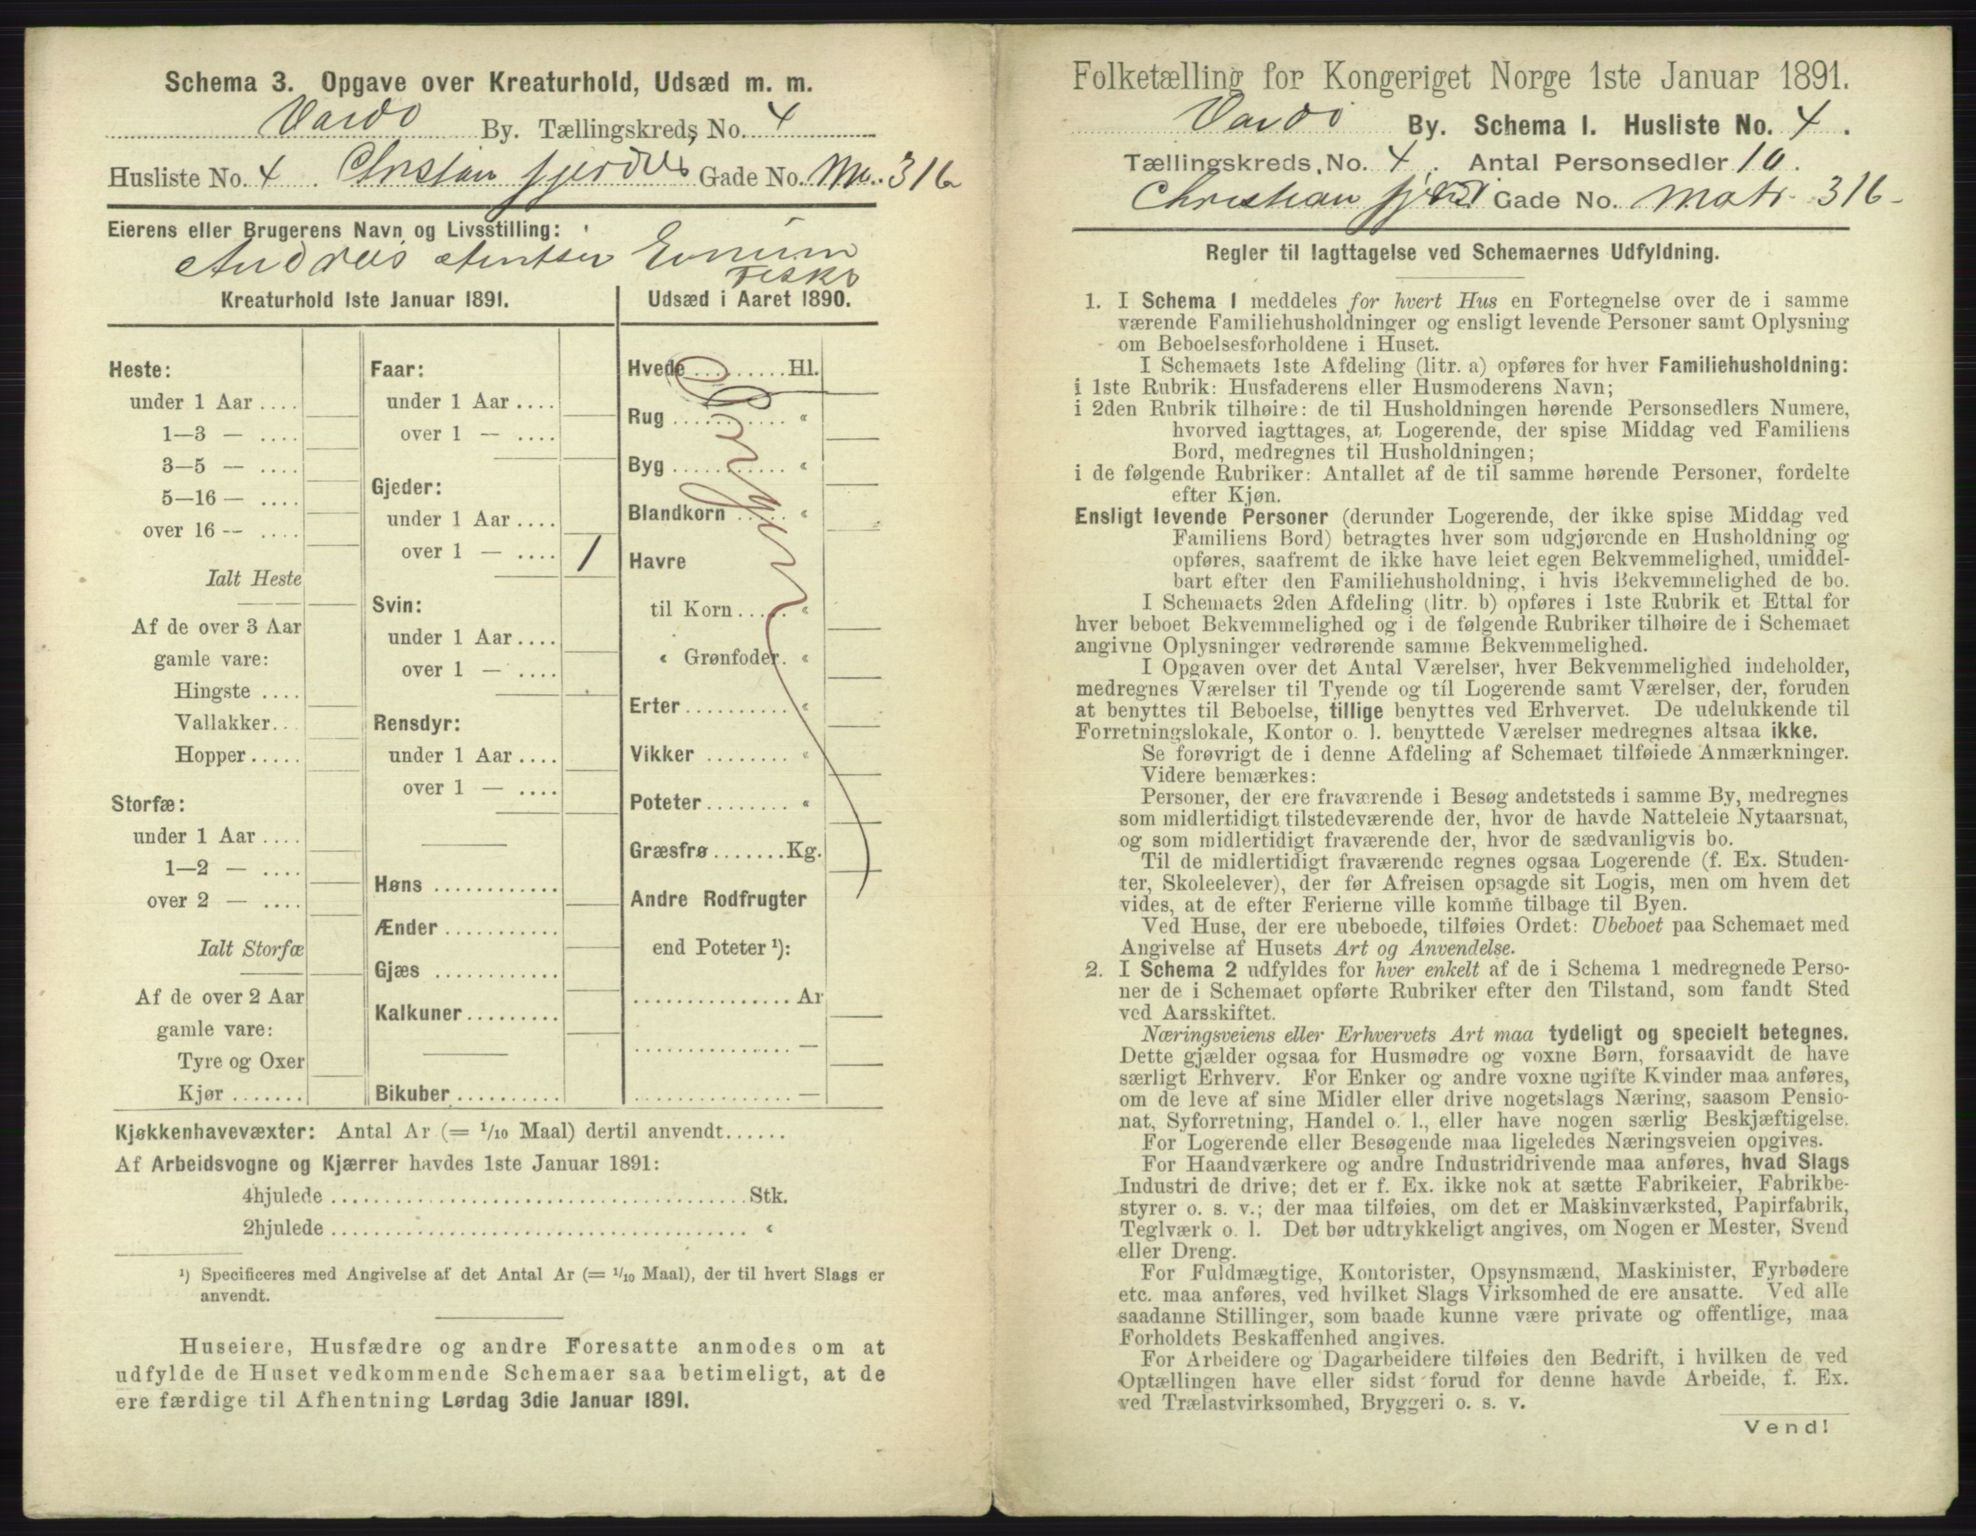 Schema 3. Opgave over Kreaturhold, Udsæd m. m.
Vardö By. Tællingskreds No. 4
Husliste No. 4 Christian fjerdes Gade No. Ma. 316
Eierens eller Brugerens Navn og Livsstilling:
Andreis
Fisker
Kreaturhold 1ste Januar 1891.
Heste:
under 1 Aar ....
1—3 — ....
3—5 — ....
5—16 — ....
over 16 -- ....
Ialt Heste
Af de over 3 Aar
gamle vare:
Hingste ....
Vallakker. . .
Hopper.....
Storfæ:
under 1 Aar ....
1—2 — ....
over 2 — ....
Ialt Storfæ
Af de over 2 Aar
gamle vare:
Tyre og Oxer
Kjør .......
Faar:
under 1 Aar ....
over 1 — ....
Gjeder:
under 1 Aar ....
over 1 — .... 1
Svin:
under 1 Aar ....
over 1 — ....
Rensdyr:
under 1 Aar ....
over 1 — ....
Høns ............
Ænder ...........
Gjæs ............
Kalkuner.........
Bikuber ..........
Udsæd i Aaret 1890.
Hvede ......... Hl.
Rug ........... «
Byg ........... «
Blandkorn ..... «
Havre
til Korn ..... «
« Grønfoder. «
Erter .......... «
Vikker ........ «
Poteter ........ «
Græsfrø ....... Kg.
Andre Rodfrugter
end Poteter ¹):
............... Ar
............... —
............... —
Kjøkkenhavevæxter: Antal Ar (= 1/10 Maal) dertil anvendt......
Af Arbeidsvogne og Kjærrer havdes 1ste Januar 1891:
4hjulede ........................................ Stk.
2hjulede ........................................ «
¹) Specificeres med Angivelse af det Antal Ar (= 1/10 Maal), der til hvert Slags er
anvendt.
Huseiere, Husfædre og andre Foresatte anmodes om at
udfylde de Huset vedkommende Schemaer saa betimeligt, at de
ere færdige til Afhentning Lørdag 3die Januar 1891.
Folketælling for Kongeriget Norge 1ste Januar 1891.
Vardö By. Schema 1. Husliste No. 4.
Tællingskreds, No. 4. Antal Personsedler 10.
Christian fjerdes Gade No. Matr. 316
Regler til Iagttagelse ved Schemaernes Udfyldning.
1. I Schema 1 meddeles for hvert Hus en Fortegnelse over de i samme
værende Familiehusholdninger og ensligt levende Personer samt Oplysning
om Beboelsesforholdene i Huset.
I Schemaets 1ste Afdeling (litr. a) opføres for hver Familiehusholdning:
i 1ste Rubrik: Husfaderens eller Husmoderens Navn;
i 2den Rubrik tilhøire: de til Husholdningen hørende Personsedlers Numere,
hvorved iagttages, at Logerende, der spise Middag ved Familiens
Bord, medregnes til Husholdningen;
i de følgende Rubriker: Antallet af de til samme hørende Personer, fordelte
efter Kjøn.
Ensligt levende Personer (derunder Logerende, der ikke spise Middag ved
Familiens Bord) betragtes hver som udgjørende en Husholdning og
opføres, saafremt de ikke have leiet egen Bekvemmelighed, umiddel-
bart efter den Familiehusholdning, i hvis Bekvemmelighed de bo.
I Schemaets 2den Afdeling (litr. b) opføres i 1ste Rubrik et Ettal for
hver beboet Bekvemmelighed og i de følgende Rubriker tilhøire de i Schemaet
angivne Oplysninger vedrørende samme Bekvemmelighed.
I Opgaven over det Antal Værelser, hver Bekvemmelighed indeholder,
medregnes Værelser til Tyende og til Logerende samt Værelser, der, foruden
at benyttes til Beboelse, tillige benyttes ved Erhvervet. De udelukkende til
Forretningslokale, Kontor o. l. benyttede Værelser medregnes altsaa ikke.
Se forøvrigt de i denne Afdeling af Schemaet tilføiede Anmærkninger.
Videre bemærkes:
Personer, der ere fraværende i Besøg andetsteds i samme By, medregnes
som midlertidigt tilstedeværende der, hvor de havde Natteleie Nytaarsnat,
og som midlertidigt fraværende der, hvor de sædvanligvis bo.
Til de midlertidigt fraværende regnes ogsaa Logerende (f. Ex. Studen-
ter, Skoleelever), der før Afreisen opsagde sit Logis, men om hvem det
vides, at de efter Ferierne ville komme tilbage til Byen.
Ved Huse, der ere ubeboede, tilføies Ordet: Ubeboet paa Schemaet med
Angivelse af Husets Art og Anvendelse.
2. I Schema 2 udfyldes for hver enkelt af de i Schema 1 medregnede Perso-
ner de i Schemaet opførte Rubriker efter den Tilstand, som fandt Sted
ved Aarsskiftet.
Næringsveiens eller Erhvervets Art maa tydeligt og specielt betegnes.
Dette gjælder ogsaa for Husmødre og voxne Børn, forsaavidt de have
særligt Erhverv. For Enker og andre voxne ugifte Kvinder maa anføres,
om de leve af sine Midler eller drive nogetslags Næring, saasom Pensio-
nat, Syforretning, Handel o. l., eller have nogen særlig Beskjæftigelse.
For Logerende eller Besøgende maa ligeledes Næringsveien opgives.
For Haandværkere og andre Industridrivende maa anføres, hvad Slags
Industri de drive; det er f. Ex. ikke nok at sætte Fabrikeier, Fabrikbe-
styrer o. s. v.; der maa tilføies, om det er Maskinværksted, Papirfabrik,
Teglværk o. l. Det bør udtrykkeligt angives, om Nogen er Mester, Svend
eller Dreng.
For Fuldmægtige, Kontorister, Opsynsmænd, Maskinister, Fyrbødere
etc. maa anføres, ved hvilket Slags Virksomhed de ere ansatte. Ved alle
saadanne Stillinger, som baade kunne være private og offentlige, maa
Forholdets Beskaffenhed angives.
For Arbeidere og Dagarbeidere tilføies den Bedrift, i hvilken de ved
Optællingen have eller sidst forud for denne havde Arbeide, f. Ex.
ved Trælastvirksomhed, Bryggeri o. s. v.
Vend!